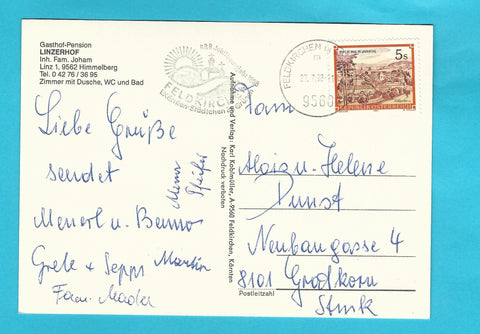 Gasthof-Pension
LINZERHOF
Inh. Fam. Joham
Linz 1, 9562 Himmelberg
Tel. 0 42 76 / 36 95
Zimmer mit Dusche, WC und Bad
Liebe Grüße
sendet
Pfeifer
Menerl u. Benno
Grete + Seppi Martin
Fam. Mader
888 Jubiläumsjahr
FELDKIRCHEN
Aufnahme und Verlag: Karl Kohlmüller, A-9560 Feldkirchen, Kärnten
Nachdruck verboten
FELDKIRCHEN
9560
5s
REPUBLIK ÖSTERREICH
Fam
Alois u. Helene
Dunst
Neubaugasse 4
8101 Gratkorn
Stmk
Postleitzahl